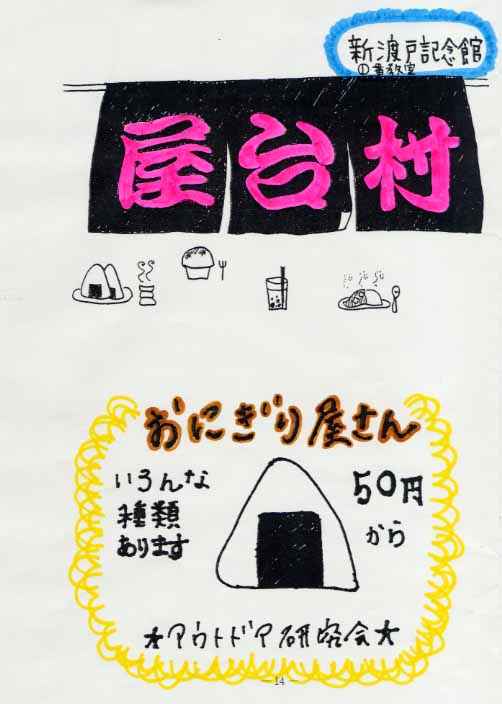 新渡戸記念館
①番教室
屋台村
おにぎり屋さん
いろんな
種類
あります
50円
から
★アウトドア研究会★
— 14 —